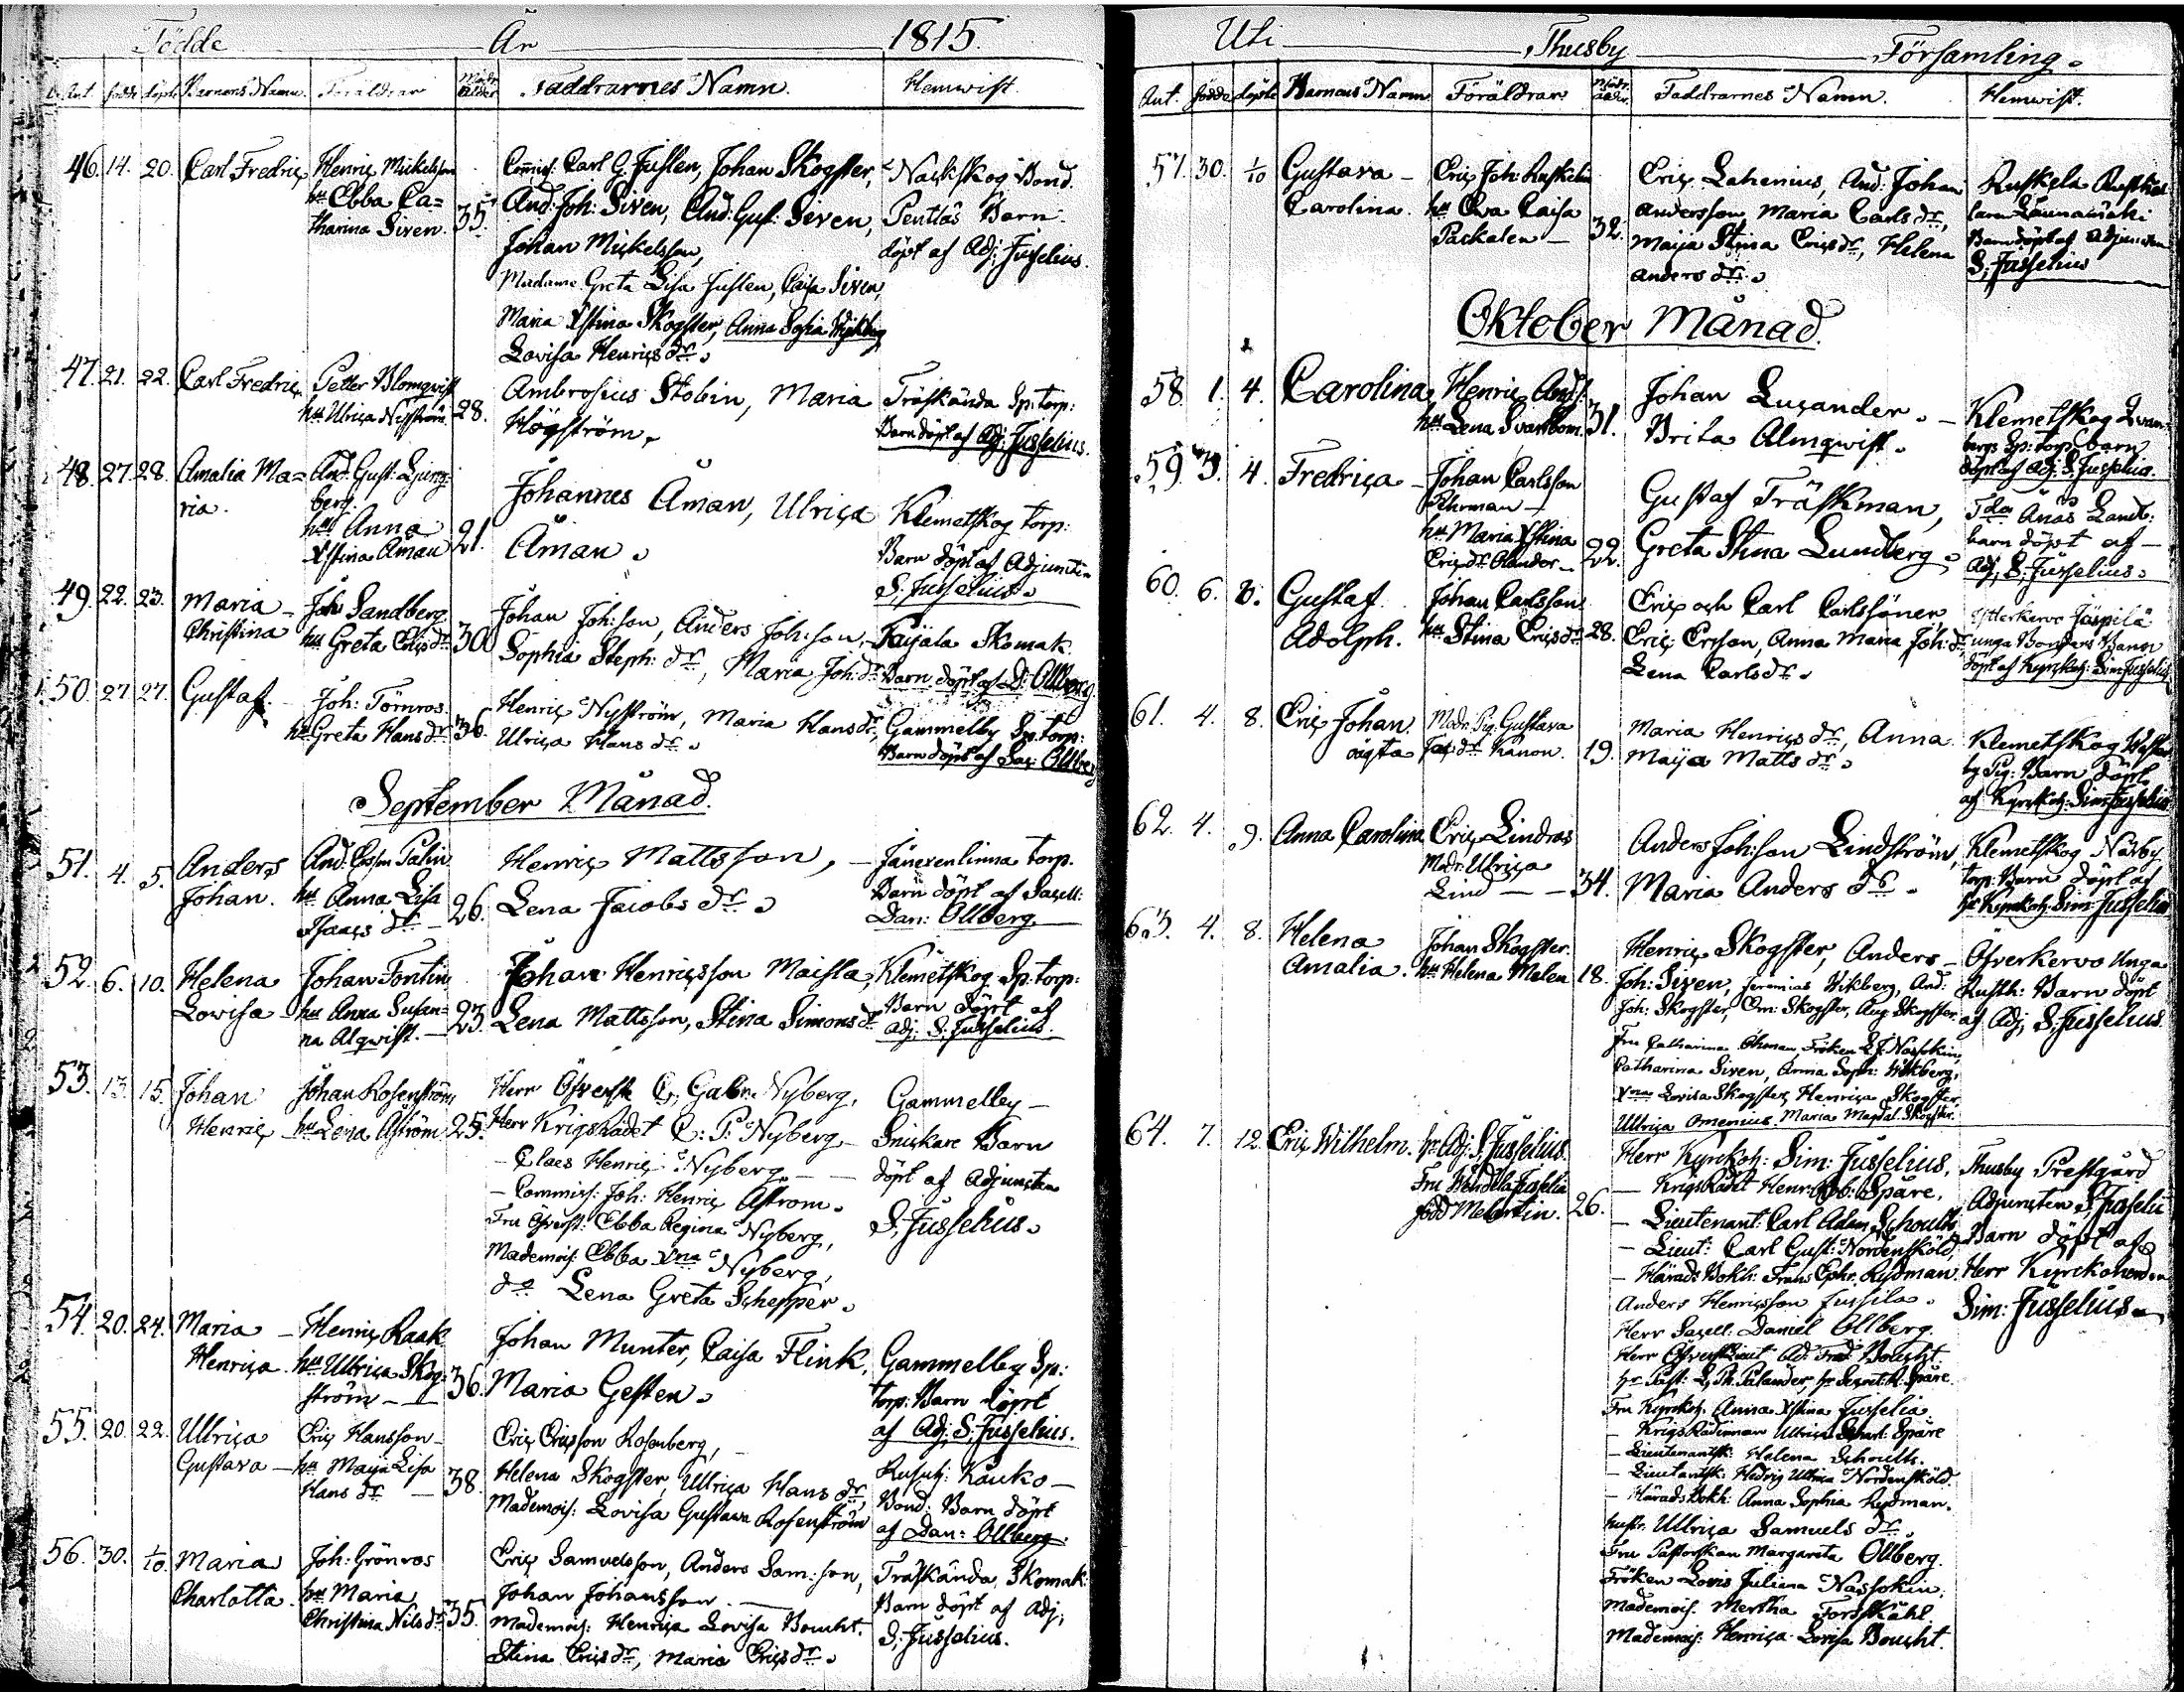 Födde År 1815.
Ant. födde döpte Barnens Namn. Föräldrar Modr. ålder Faddrarnes Namn. Hemvist.
46. 14. 20. Carl Fredric Henric Mickelsson
hu Ebba Ca=
tharina Siven. 35.
Commiss: Carl G. Juslen, Johan Skogster,
And: Joh: Siven, And: Gust: Siven,
Johan Mickelsson,
Madame Greta Lisa Juslen, Caisa Siven,
Maria Xstina Skogster, Anna Sofia Wikberg
Lovisa Henrics dr.
Näckskog Bond.
Pentläs Barn
döpt af Adj: Jusselius.
47. 21. 22. Carl Fredric Petter Blomqvist
hu Ulrica Nysström 28.
Ambrosius Stobin, Maria
Högström,
Träskända Sp: torp:
Barn döpt af Adj: Jusselius.
48. 27. 28. Amalia Ma=
ria.
And: Gust: Ljung-
berg.
hu Anna
Xstina Åman 21.
Johannes Åman, Ulrica
Åman.
Klemetskog torp:
Barn döpt af Adjuncten
S. Jusselius.
49. 22. 23. Maria
Christina
Joh: Sandberg
hu Greta Erics dr 30
Johan Joh:son, Anders Joh:son,
Sophia Steph: dr, Maria Joh: dr
Paijala Skomak.
Barn döpt af D: Ollberg.
50. 27. 27. Gustaf. Joh: Törnros.
hu Greta Hans dr 36.
Henric Nyström, Maria Hans dr,
Ulrica Hans dr.
Gammelby Sp: torp:
Barn döpt af Sac: Ollberg
September Månad.
51. 4. 5. Anders
Johan.
And: Palin
hu Anna Lisa
Isaacs dr 26.
Henric Mattsson,
Lena Jacobs dr.
Jänexenlinna torp.
Barn döpt af Sacell:
Dan: Ollberg
52. 6. 10. Helena
Lovisa
Johan Fontin
hu Anna Susan=
na Alqwist. 23.
Johan Henricsson Maisla,
Lena Mattsson, Stina Simons dr
Klemetskog Sp: torp:
Barn döpt af
Adj: S. Jusselius.
53. 13. 15. Johan
Henric
Johan Rosenström
hu Lena Aström 25.
Herr Öfverste C: Gabr. Nyberg,
Herr Krigsrådet C: P: Nyberg
– Claes Henric Nyberg
– Commiss: Joh: Henric Astrom.
Fru Öfverst: Ebba Regina Nyberg,
Mademois: Ebba Xna Nyberg,
do Lena Greta Schepper.
Gammelby
Snickare Barn
döpt af Adjuncten
S. Jusselius.
54. 20. 24. Maria
Henrica
Henric Raak
hu Ullrica Skog-
ström 36.
Johan Munter, Caisa Flink,
Maria Gesten.
Gammelby Sp:
torp: Barn döpt
af Adj: S. Jusselius.
55. 20. 22. Ullrica
Gustava
Eric Hansson
hu Maija Lisa
Hans dr 38.
Eric Ericsson Rosenberg,
Helena Skogster, Ullrica Hans dr,
Mademois: Lovisa Gustava Rosenström
Rusutj: Kauko
Bond: Barn döpt
af Dan: Ollberg.
56. 30. 1/10 Maria
Charlotta.
Joh: Grönros
hu Maria
Christina Nils dr 35.
Eric Samuelsson, Anders Sam:son,
Johan Johansson.
Mademois: Henrica Lovisa Boucht.
Stina Erics dr, Maria Erics dr.
Träskända Skomak:
Barn döpt af Adj:
S. Jusselius.
Uti Thusby Församling.
Ant. födde döpte Barnens Namn Föräldrar Modr. ålder. Faddrarnes Namn. Hemvist.
57. 30. 1/10 Gustava
Carolina.
Eric Joh: Ruskelin
hu Eva Caisa
Packalen 32.
Eric Lahenius, And: Johan
Andersson, Maria Carls dr,
Maija Stina Erics dr, Helena
Anders dr.
Ruskela
Barn döpt af Adjuncten
S. Jusselius
Oktober Månad.
58. 1. 4. Carolina Henric And:
hu Lena Svanbom. 31.
Johan Lucander.
Brita Almqwist.
Klemetskog
bergs Sp: torp: barn
döpt af Adj: S. Jusselius.
59. 3. 4. Fredrica Johan Carlsson
Pehrman
hu Maria Xstina
Erics dr 22.
Gustaf Träskman,
Greta Stina Lundberg
Änäs Landb:
barn döpt af
Adj. S. Jusselius.
60. 6. 8. Gustaf
Adolph.
Johan Carlsson
hu Stina Erics dr 28.
Eric och Carl Carlssöner,
Eric Ericson, Anna Maria Joh: dr
Lena Carls dr.
Jäspilä
unga Bondens Barn
döpt af Kyrckoh: Sim: Jusselius
61. 4. 8. Eric Johan
oägta
Modr. Pig. Gustava
Jac: dr Känon. 19.
Maria Henrics dr, Anna
Maija Matts dr.
Klemetskog
by Pig: Barn döpt
af Kyrckoh: Sim: Jusselius
62. 4. 9. Anna Carolina Eric Lindros
Modr. Ulrica
Lind 34.
Anders Joh:son Lindström,
Maria Anders dr.
Klemetskog Närby
torp: Barn döpt af
Hr Kyrckoh: Sim: Jusselius
63. 4. 8. Helena
Amalia.
Johan Skogster.
hu Helena Malen 18.
Henric Skogster, Anders
Joh: Siven, Jeremias Wikberg, And:
Joh: Skogster, Em: Skogster, Aug: Skogster.
Fru Catharina Öhman, Fröken L. J. Nassokin,
Catharina Siven, Anna Soph: Wikberg,
Xna Lovisa Skogster, Henrica Skogster
Ullrica Omenius. Maria Magdal: Skogster.
Öfverkervo Unga
Rusth: Barn döpt
af Adj: S. Jusselius
64. 7. 12. Eric Wilhelm. hr Adj: S. Jusselius.
Fru Wendela Juselia
född Melartin. 26.
Herr Kyrckoh: Sim: Jusselius,
– Krigs Rådet Henr: Spåre,
– Lieutenant: Carl Adam Schoultz
– Lieut: Carl Gust: Nordensköld,
– Härads Bokh: Frans Ephr. Rydman
Anders Henricsson Jussila.
Herr Sacell: Daniel Ollberg.
Herr Öfverst Lieut Ad: Fred: Boucht
hr Past: Palander, hr Secret: Spåre.
Fru Kyrckoh: Anna Xstina Jusselia
– Krigs Rådinnan Ullrica Spåre
– Lieutenantsk: Helena Schoultz.
– Lieutantsk: Hedvig Ullrica Nordensköld.
– Härads Bokh: Anna Sophia Rydman.
hustr. Ullrica Samuels dr.
Fru Pastorskan Margareta Ollberg.
Fröken Lovis Juliana Nassokin.
Mademois. Mertha Forsskåhl.
Mademois: Henrica Lovisa Boucht.
Thusby Prestgård
Adjuncten S. Jusselii
Barn döpt af
Herr Kyrckoherden
Sim: Jusselius